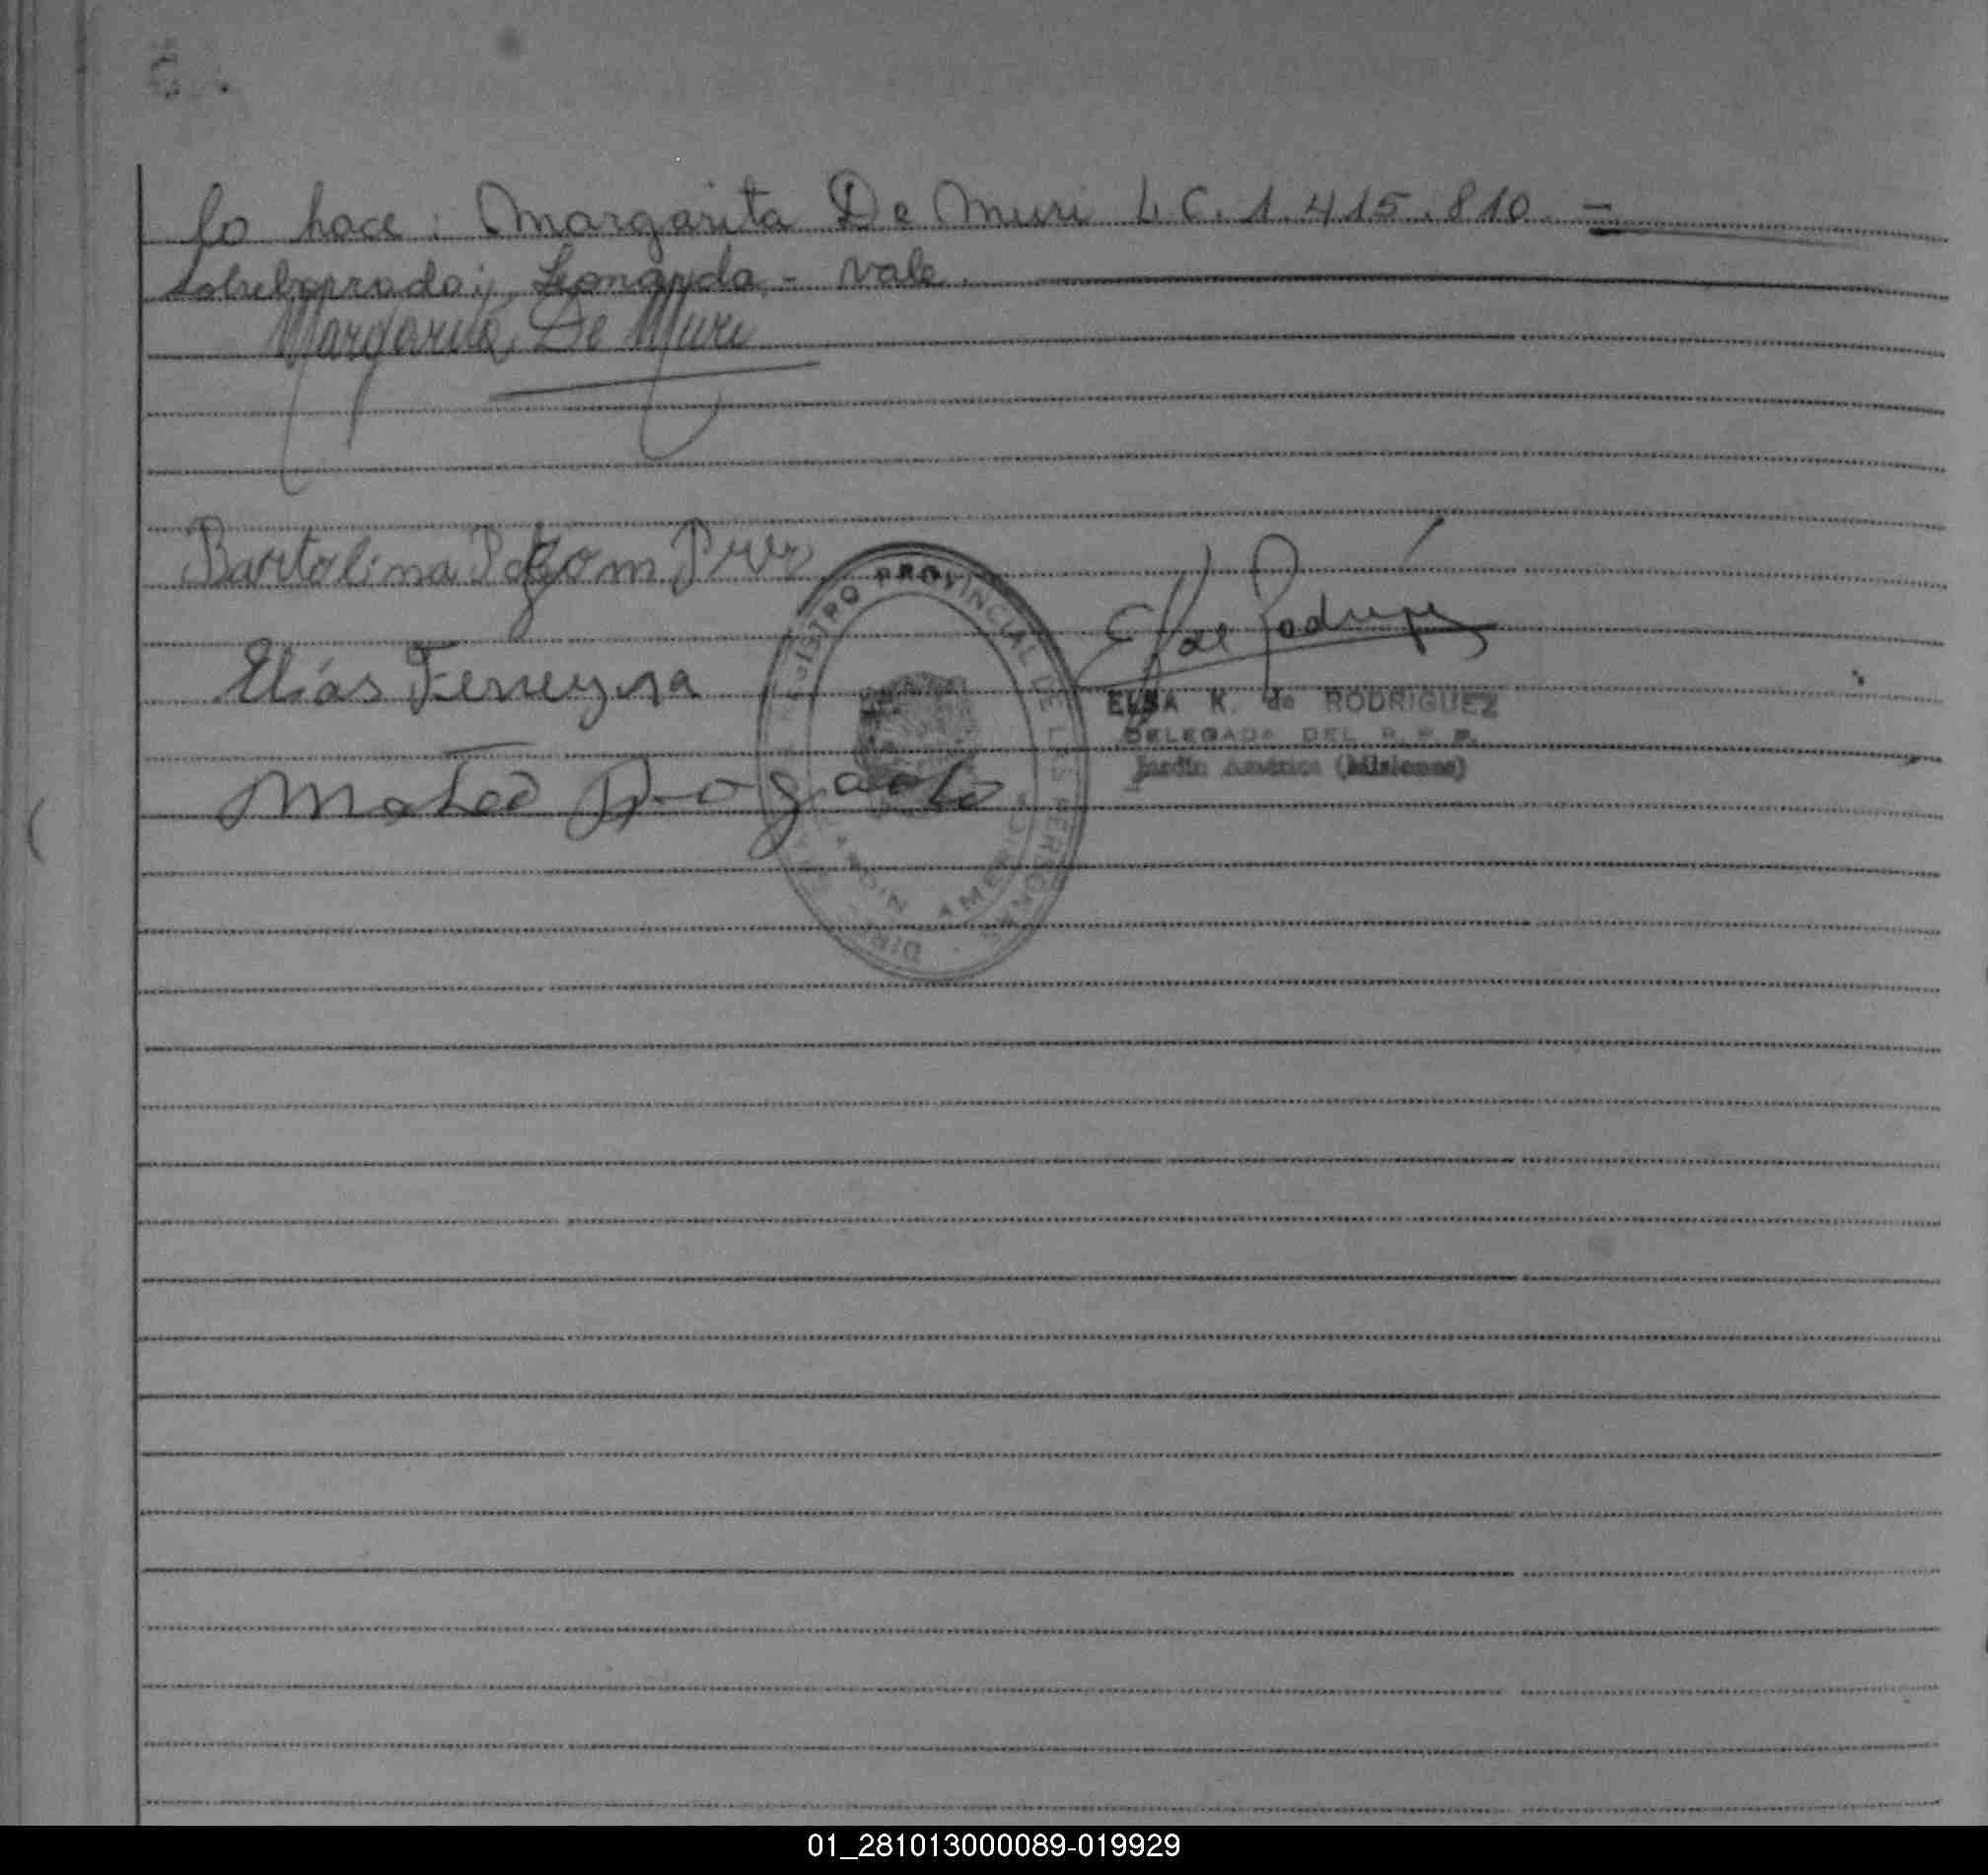 lo hace: Margarita De Muri L.C. 1.415.810. —
Sobreborrado: Leonarda - vale.
Margarita De Muri
Bartolina
Elías Ferreyra
Mateo
REGISTRO PROVINCIAL DE LAS PERSONAS
JARDIN AMERICA
ELSA K. de RODRIGUEZ
DELEGADA DEL R. P. P.
Jardín América (Misiones)
01_281013000089-019929